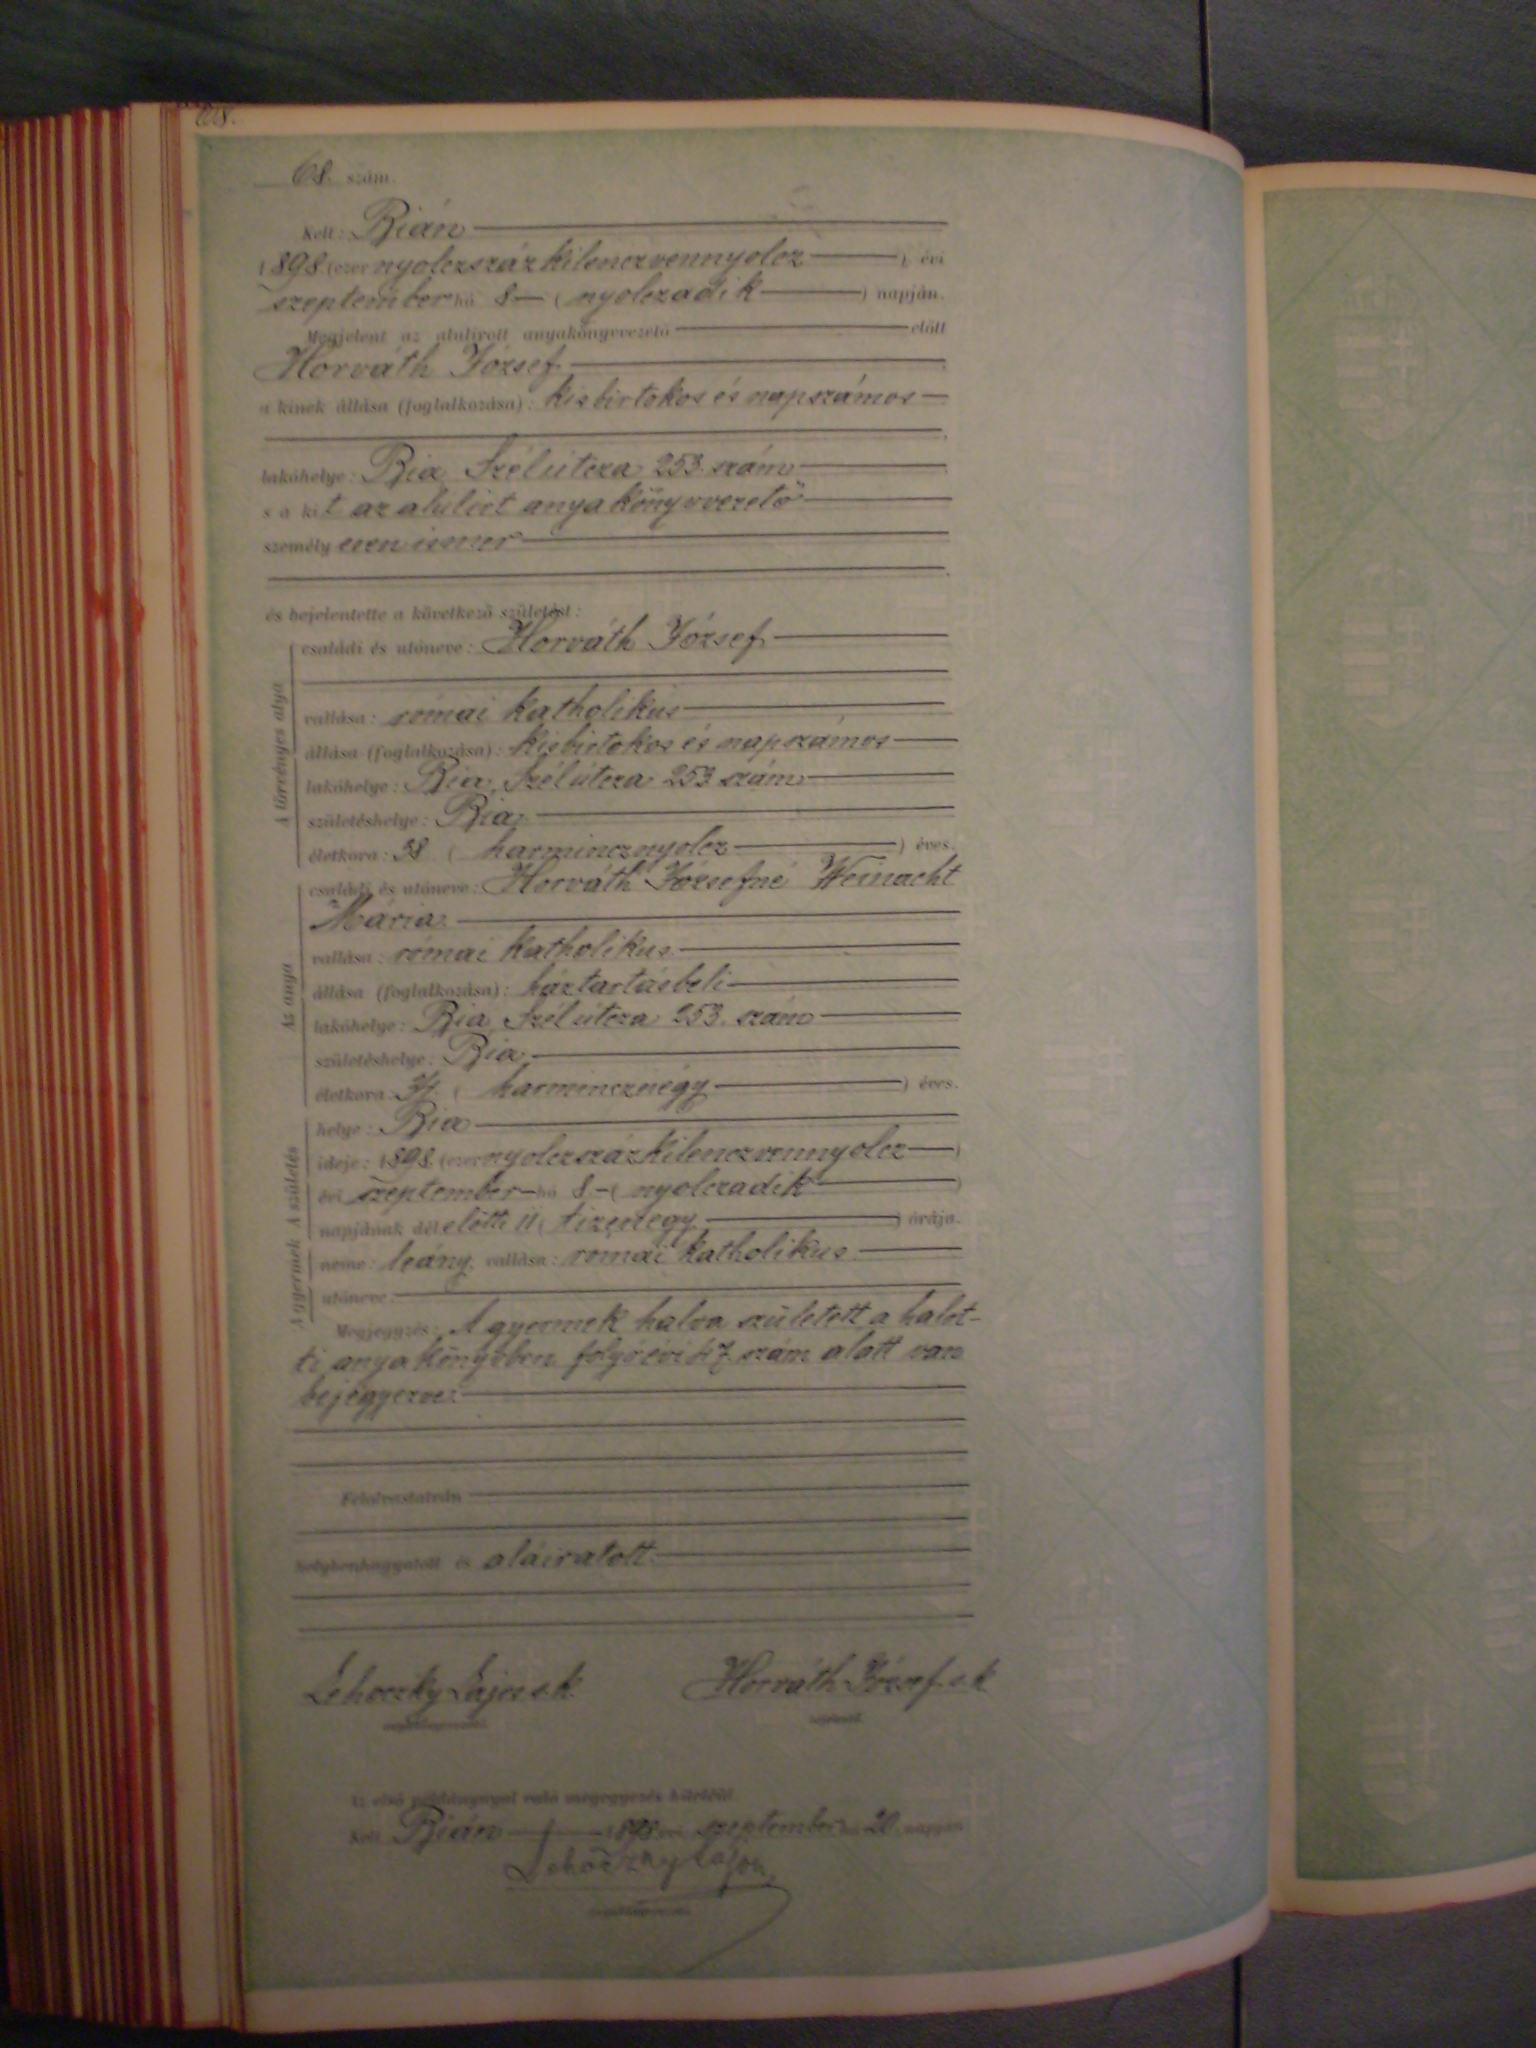 68.
68. szám.
Kelt: Bián
1898 (ezer nyolczszázkilenczvennyolcz ) évi
szeptember hó 8 ( nyolczadik ) napján.
Megjelent az alulirott anyakönyvvezető előtt
Horváth József
a kinek állása (foglalkozása): kisbirtokos és napszámos
lakóhelye: Bia Szélútcza 253. szám
s a kit az alulirt anyakönyvvezető
személyesen ismer
és bejelentette a következő születést:
A törvényes atya
családi és utóneve: Horváth József
vallása: római katholikus
állása (foglalkozása): kisbirtokos és napszámos
lakóhelye: Bia, Szélútcza 253 szám
születéshelye: Bia
életkora: 38 ( harmincznyolcz ) éves.
Az anya
családi és utóneve: Horváth Józsefné Weinacht
Mária
vallása: római katholikus
állása (foglalkozása): háztartásbeli
lakóhelye: Bia, Szélútcza 253. szám
születéshelye: Bia
életkora: 34 ( harmincznégy ) éves.
A gyermek A születés
helye: Bia
ideje: 1898. (ezer nyolczszázkilenczvennyolcz )
évi szeptember hó 8 ( nyolczadik )
napjának délelőtti 11 ( tizenegy ) órája.
neme: leány, vallása: római katholikus
utóneve:
Megjegyzés: A gyermek halva született a halot-
ti anyakönyvben folyó évi 47. szám alatt van
bejegyezve.
Felolvastatván
helybenhagyatott és aláiratott.
Lehoczky Lajos s.k. Horváth József s.k.
anyakönyvvezető. bejelentő.
Az első példánynyal való megegyezés hiteléül.
Kelt Bián 1898 évi szeptember hó 20. napján
Lehoczky Lajos
anyakönyvvezető.